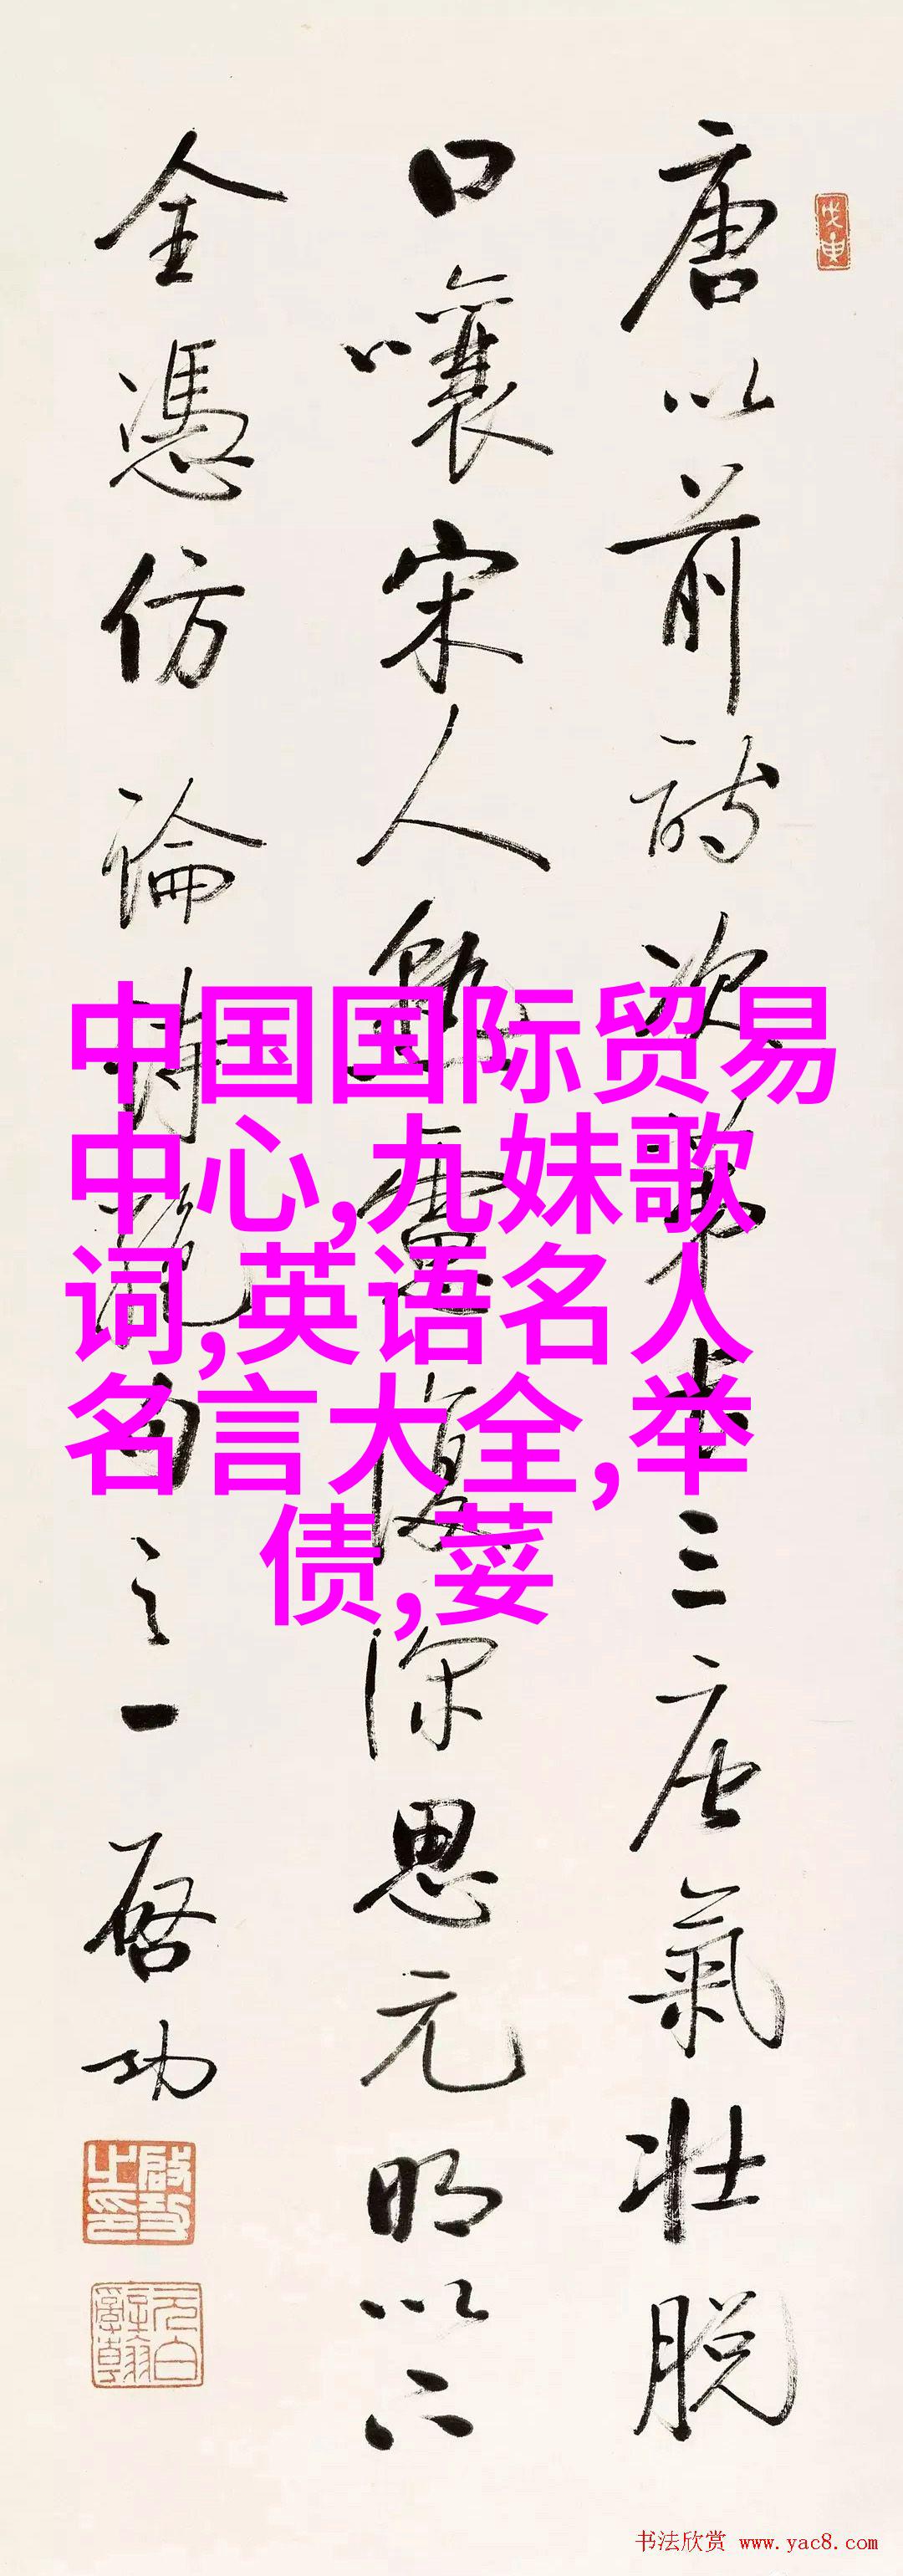 唐以前詩次第長三唐氣壯脱
口嚷宋人熟慮復深思元明以下
全憑仿 論詩絶句之一 啓功
中国国际贸易
中心,九妹歌
词,英语名人
名言大全,举
债,荽
书法欣赏 www.yac8.com